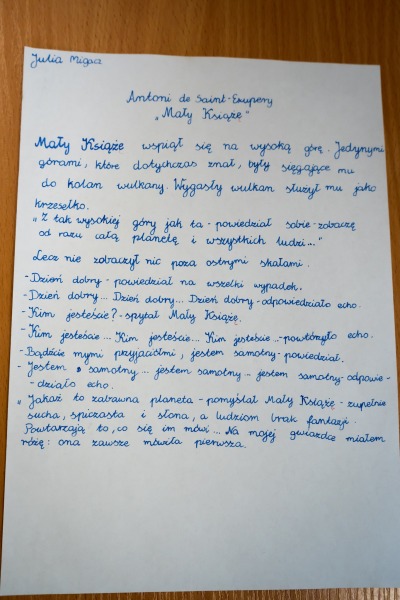 Julia Migsa
Antoni de Saint-Exupery
„Mały Książę"
Mały Książe wspiął się na wysoką górę. Jedynymi
górami, które dotychczas znał, były sięgające mu
do kolan wulkany. Wygasły wulkan służył mu jako
krzesełko.
„Z tak wysokiej góry jak ta - powiedział sobie - zobaczę
od razu całą planetę i wszystkich ludzi..."
Lecz nie zobaczył nic poza ostrymi skałami.
- Dzień dobry - powiedział na wszelki wypadek.
- Dzień dobry... Dzień dobry... Dzień dobry - odpowiedziało echo.
- Kim jesteście? - spytał Mały Książę.
- Kim jesteście... Kim jesteście... Kim jesteście... - powtórzyło echo.
- Bądźcie mymi przyjaciółmi, jestem samotny - powiedział.
- Jestem samotny... jestem samotny... jestem samotny - odpowie-
- działo echo.
„Jakaż to zabawna planeta - pomyślał Mały Książę - zupełnie
sucha, spiczasta i słona, a ludziom brak fantazji.
Powtarzają to, co się im mówi... Na mojej gwiazdce miałem
różę: ona zawsze mówiła pierwsza.